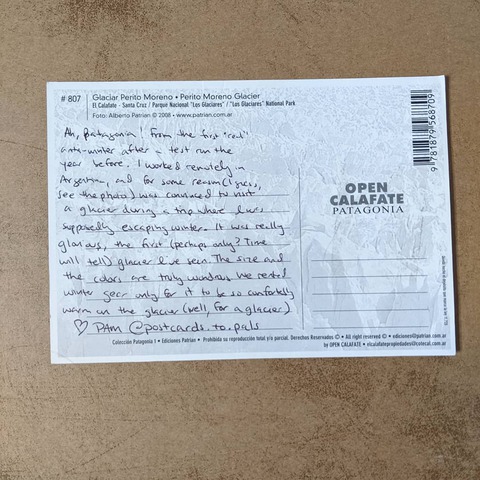 # 807
Glaciar Perito Moreno • Perito Moreno Glacier
El Calafate - Santa Cruz / Parque Nacional "Los Glaciares" / "Los Glaciares" National Park
Foto: Alberto Patrian © 2008 • www.patrian.com.ar
Ah, Patagonia! From the first "real"
anti-winter after a test run the
year before. I worked remotely in
Argentina, and for some reason (I guess,
see the photo) I was convinced to visit
a glacier during a trip where I was
supposedly escaping winter. It was really
glorious, the first (perhaps only? Time
will tell) glacier I've seen. The size and
the colors are truly wondrous. We rented
winter gear only for it to be so comfortably
warm on the glacier (well, for a glacier)
♡ PAM @postcards.to.pals
OPEN
CALAFATE
PATAGONIA
9 781879 568709
Colección Patagonia I • Ediciones Patrian • Prohibida su reproducción total y/o parcial. Derechos Reservados © • All right reserved © • ediciones@patrian.com.ar
by OPEN CALAFATE • elcalafatepropiedades@cotecal.com.ar